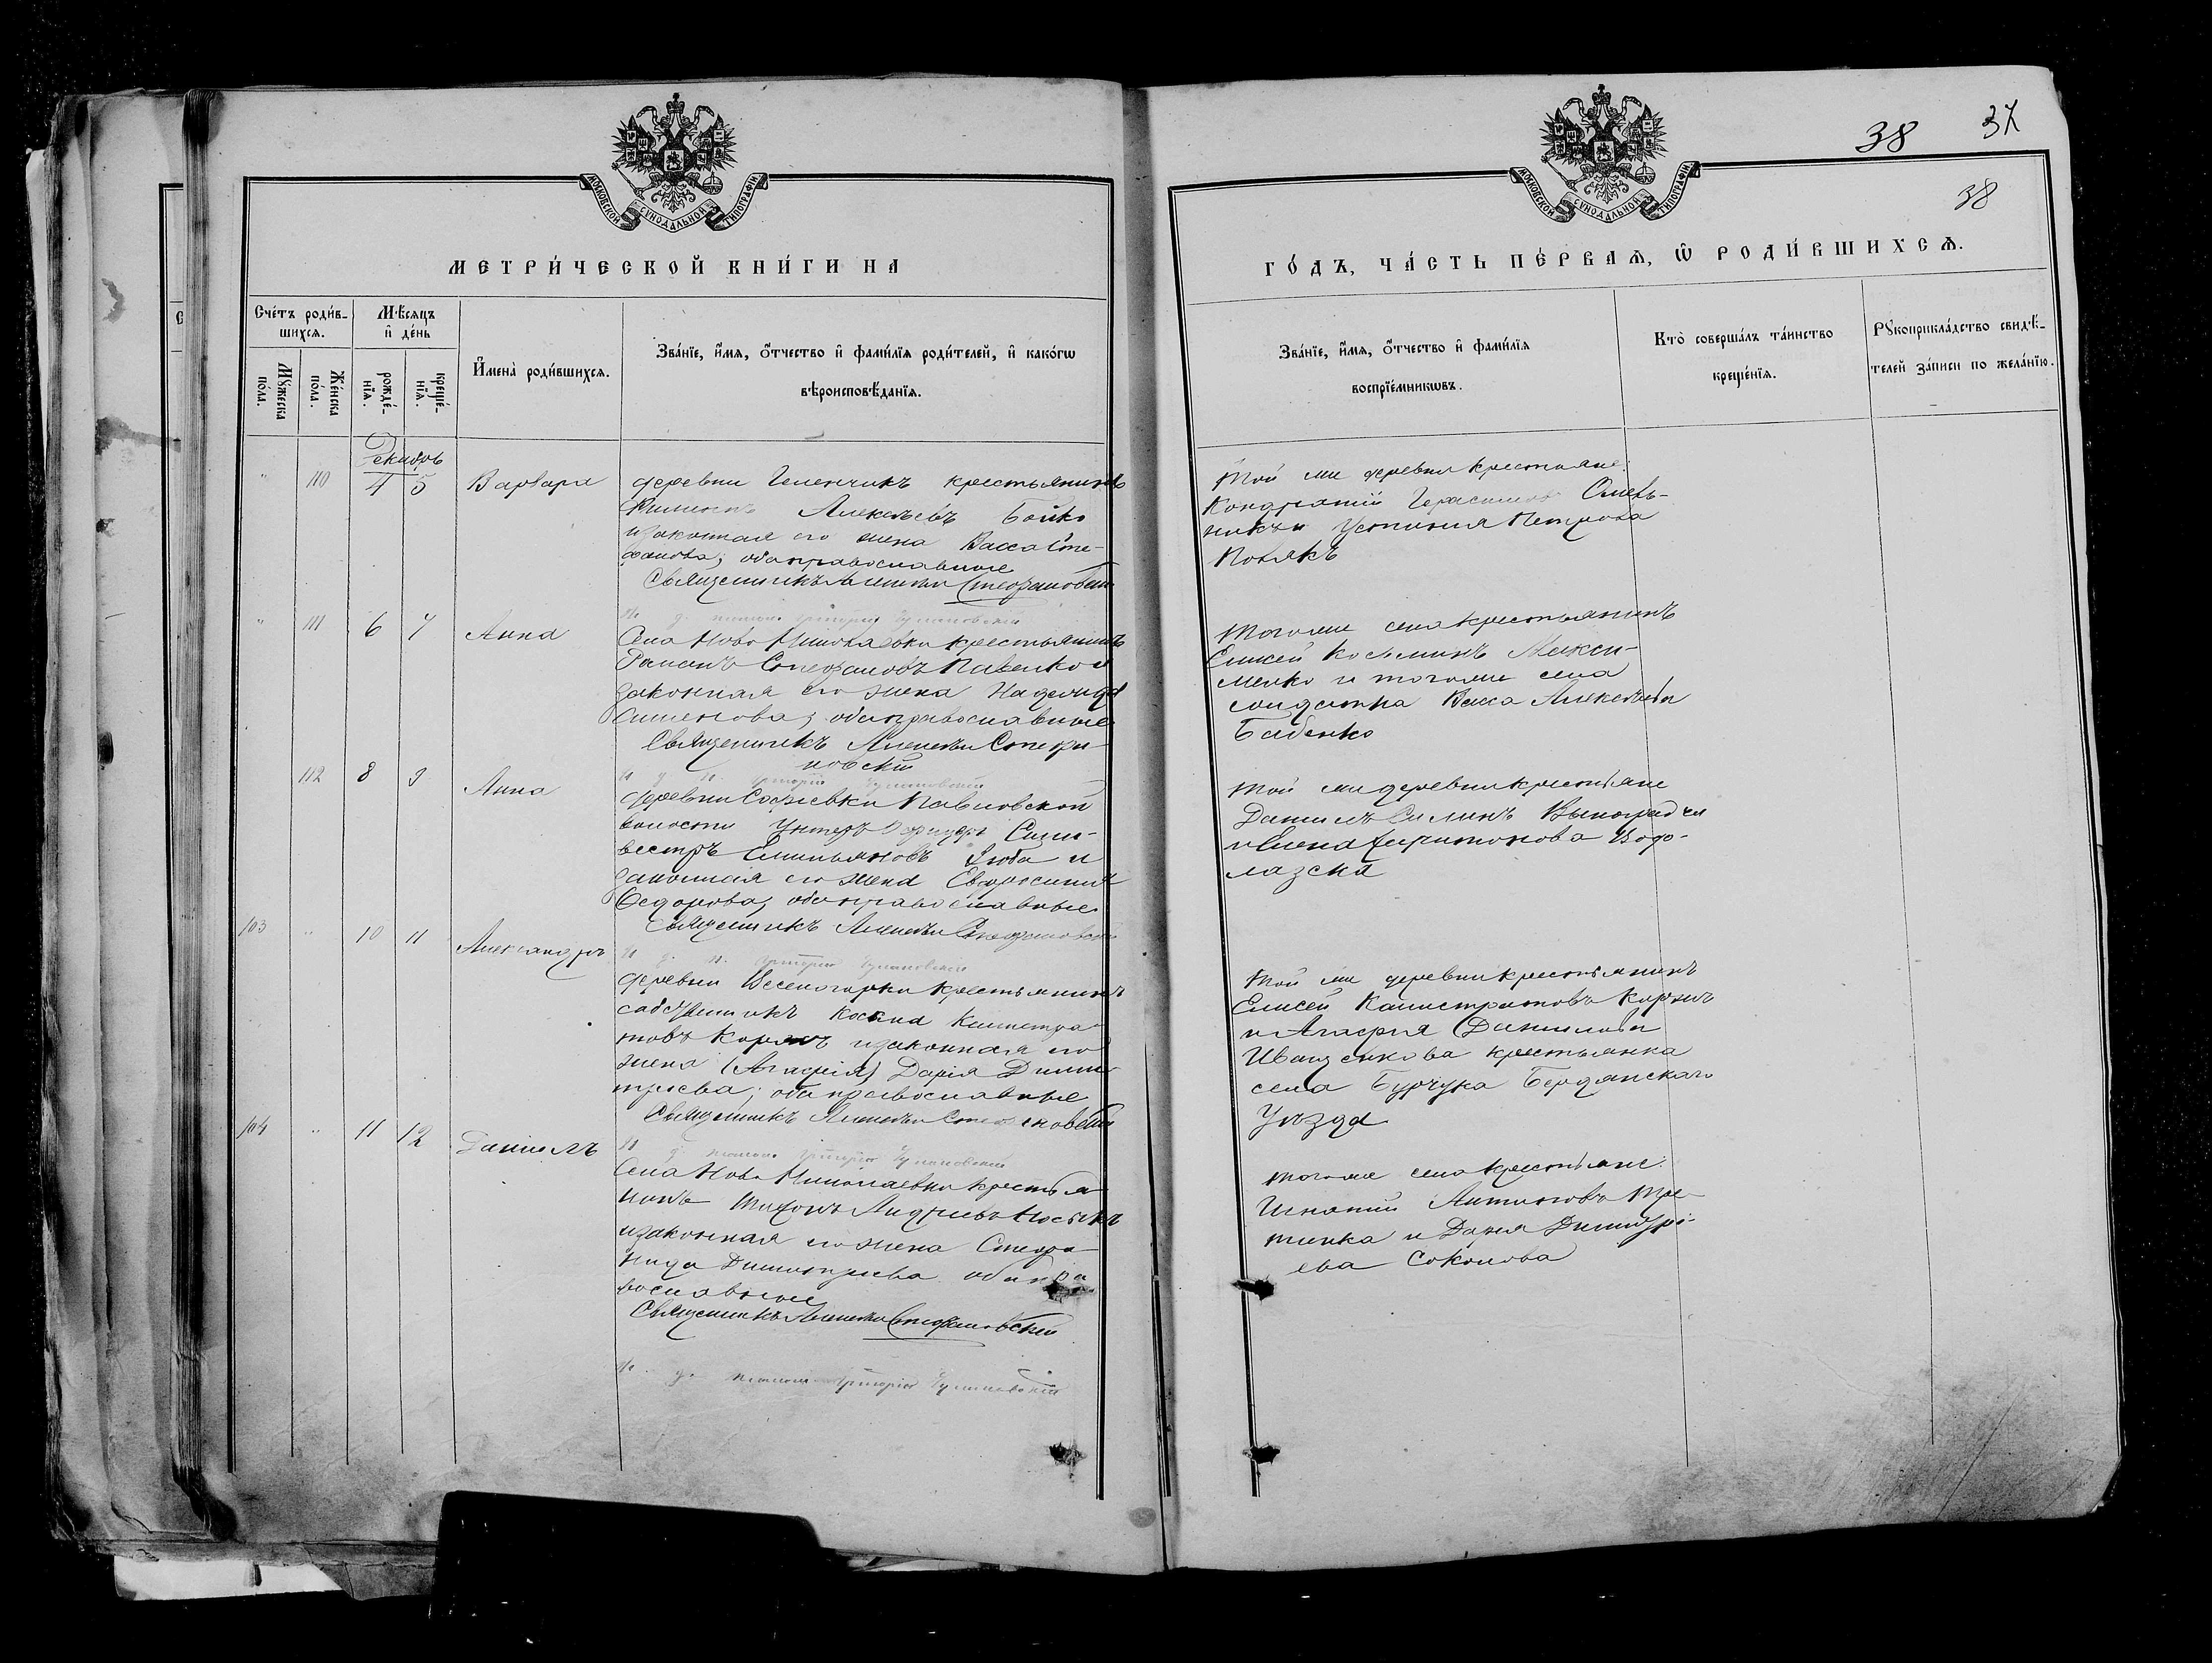 МОСКОВСКОЙ СУНОДАЛЬНОЙ ТИПОГРАФІИ
МЕТРИ́ЧЕСКОЙ КНИ́ГИ НА
Сче́тъ роди́в-
шихся.
Мѣ́сяцъ
и҆ де́нь
Мꙋ́жеска
по́ла.
Же́нска
по́ла.
рожде́-
нїя.
креще́-
нїя.
И҆мена̀ роди́вшихся.
Зва́нїе, и҆́мя, ѻ҆́тчество и҆ фами́лїя роди́телей, и҆ како́гѡ
вѣроисповѣ́данїя.
Декабрь
" 110 4 5 Варвара
деревни крестьянинъ
Алексѣевъ Бойко
и законная его жена Васса Сте-
фанова; оба православные
Священникъ Стефановскій
" 111 6 7 Анна
Села Ново Николаевки крестьянинъ
Романъ Стефановъ Павленко и
законная его жена Надежда
Семенова; оба православные
Священникъ Алексѣй Стефа-
новскій
112 8 9 Анна
деревни Софіевки Павловской
волости Унтеръ Офицеръ Силь-
вестръ Емильяновъ и
законная его жена Евфросинія
Федорова; оба православные
Священникъ Алексѣй Стефановскій
103 " 10 11 Александръ
деревни Веселогорки крестьянинъ
собственникъ Косьма Каллистра-
товъ и законная его
жена (Агафія) Дарія Дими-
тріева; оба православные
Священникъ Алексѣй Стефановскій
104 " 11 12 Даніилъ
Села Ново Николаевки крестья-
нинъ Тихонъ Андреевъ Носикъ
и законная его жена Стефа-
нида Димитріева оба пра
вославные
Священникъ Алексѣй Стефановскій
38 37
38
МОСКОВСКОЙ СУНОДАЛЬНОЙ ТИПОГРАФІИ
ГО́ДЪ, ЧА́СТЬ ПЕ́РВАЯ, Ѽ РОДИ́ВШИХСЯ.
Зва́нїе, и҆́мя, ѻ҆́тчество и҆ фами́лїя
воспрїе́мникѡвъ.
Кто̀ соверша́лъ та́инство
креще́нїя.
Рꙋкоприкла́дство свидѣ́-
телей за́писи по жела́нїю.
Той же деревни крестьяне
Кондратій Герасимовъ Олей-
никъ и Устинія Петрова
Полякъ
Того же села крестьянинъ
Елисей Косьминъ Макси-
менко и того же села
солдатка Васса Алексѣева
Бабенко
Той же деревни крестьяне
Даніилъ Силинъ
и Елена Харитонова Водо-
лазска
Той же деревни крестьянинъ
Елисей Калистратовъ
и Агафія Данилова
Иващенкова крестьянка
села Бердянскаго
Уѣзда
Того же села крестьяне
Игнатій Антиповъ Тре-
тинка и Дарія Димитрі-
ева Соколова